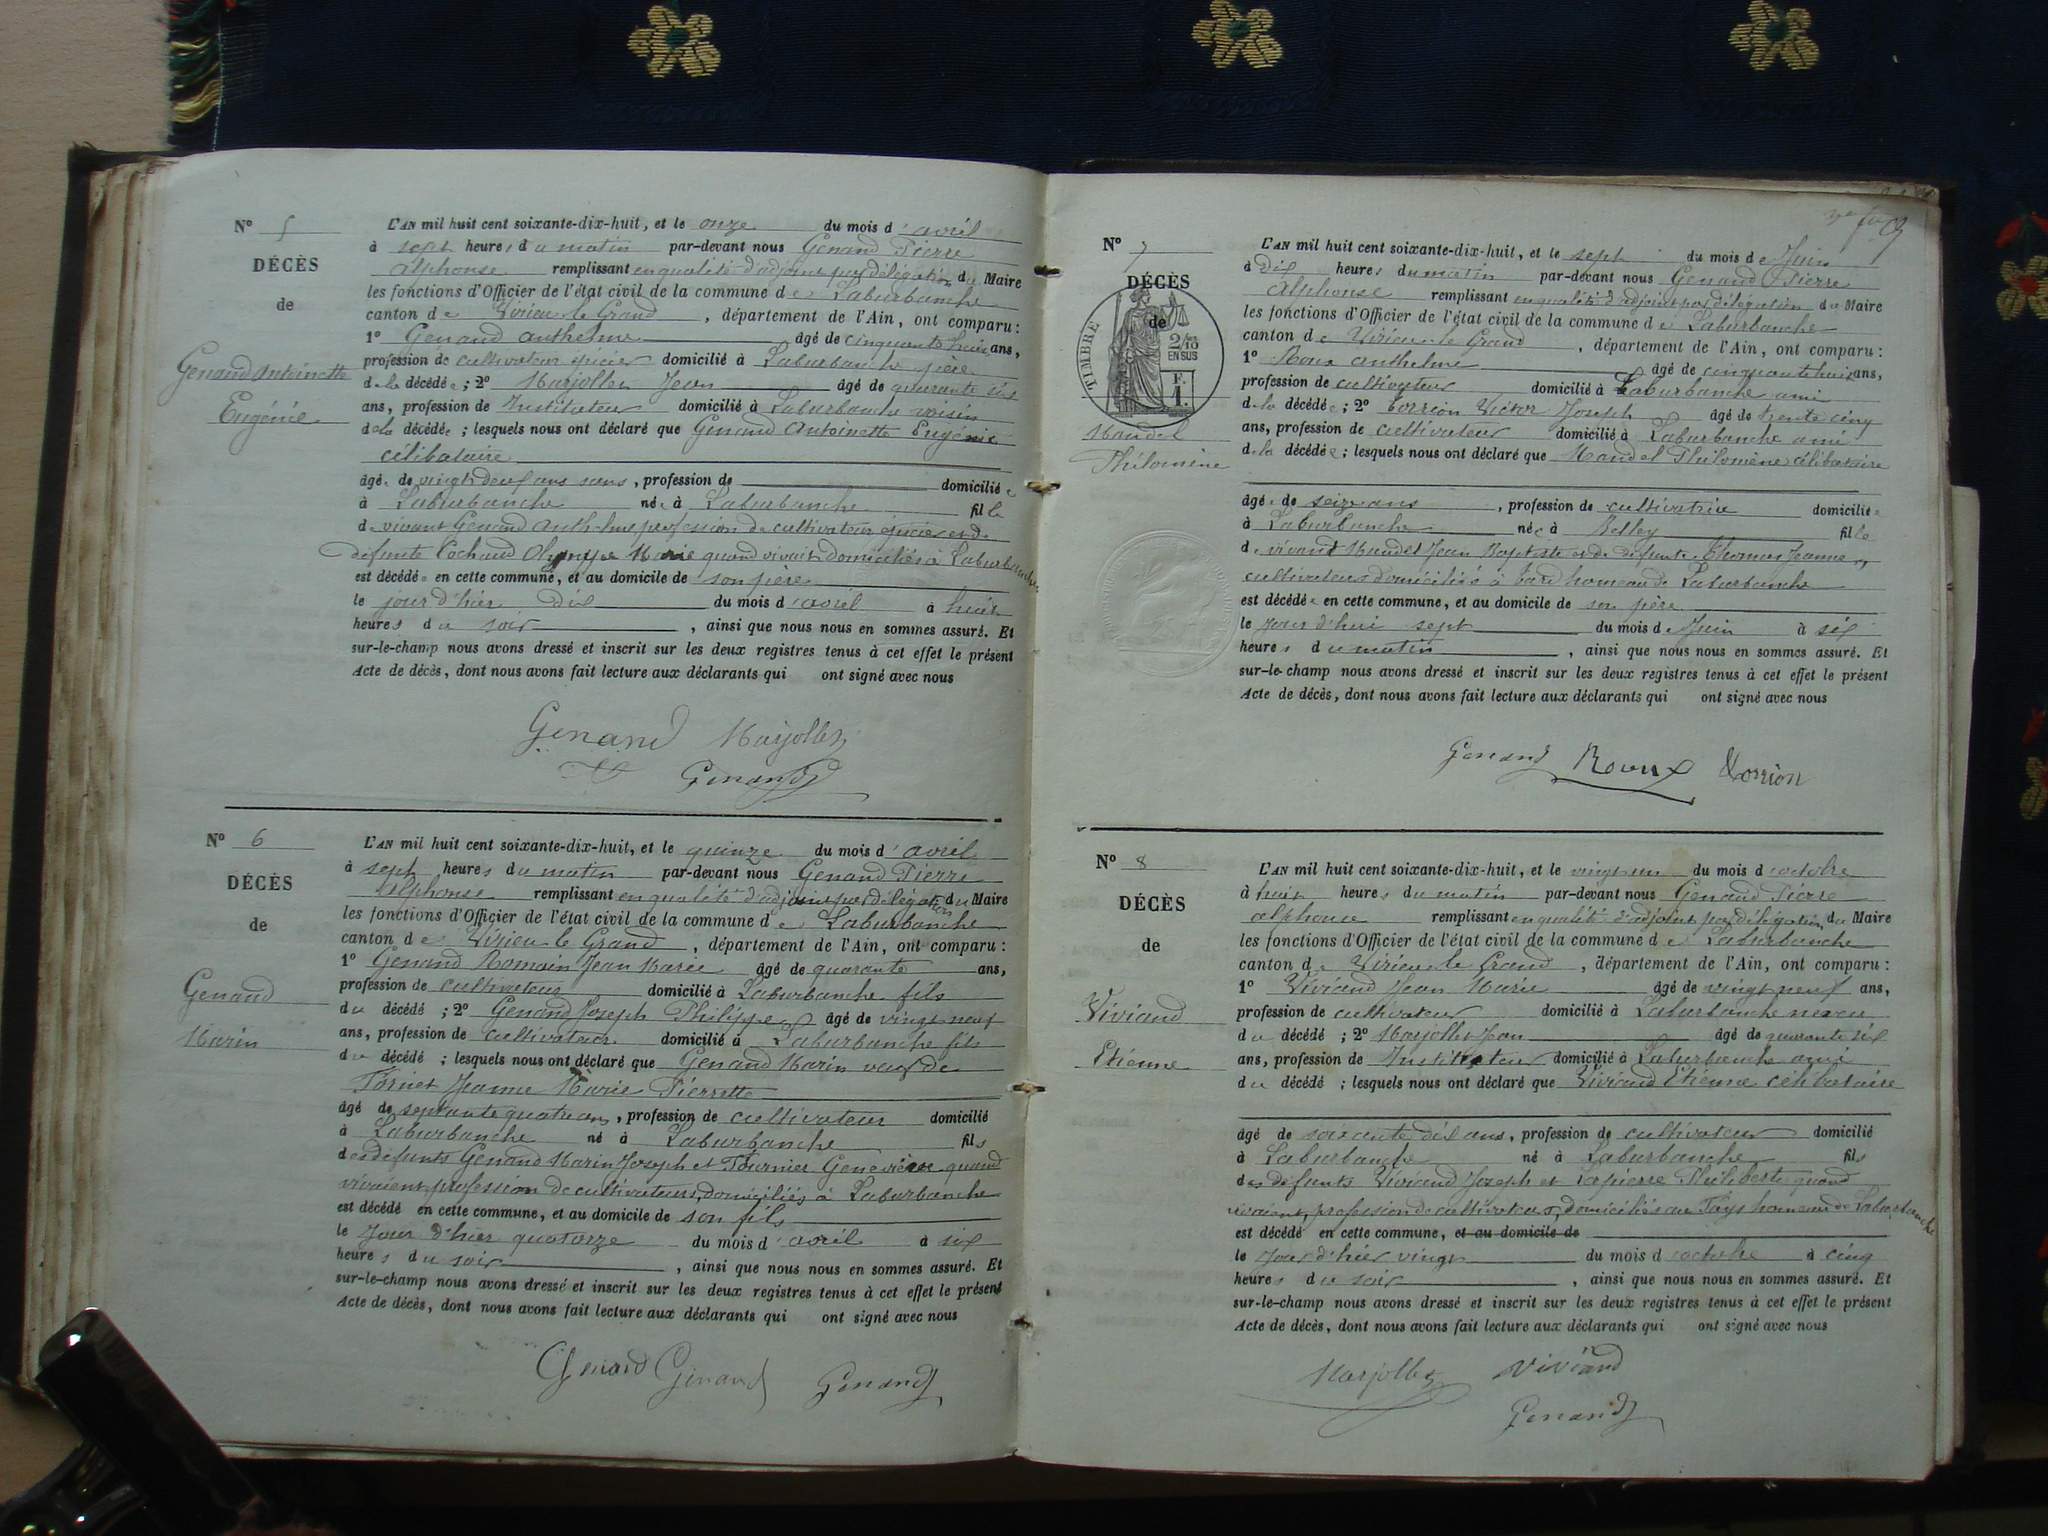 N° 5
DÉCÈS
de
Genand Antoinette
Eugénie
L'AN mil huit cent soixante-dix-huit, et le onze du mois d'avril
à sept heures du matin par-devant nous Genand Pierre
Alphonse remplissant en qualité d'adjoint par délégation du Maire
les fonctions d'Officier de l'état civil de la commune de Laburbanche
canton de Virieu le Grand, département de l'Ain, ont comparu :
1° Genand Anthelme âgé de cinquante huit ans,
profession de cultivateur épicier domicilié à Laburbanche père
de la décédée ; 2° Marjollet Jean âgé de quarante six
ans, profession de Instituteur domicilié à Laburbanche voisin
de la décédée ; lesquels nous ont déclaré que Genand Antoinette Eugénie
célibataire
âgée de vingt deux ans sans, profession de domiciliée
à Laburbanche née à Laburbanche fille
de vivant Genand Anthelme profession de cultivateur épicier et de
défunte Cochaud Olympe Marie quand vivait domiciliés à Laburbanche
est décédée en cette commune, et au domicile de son père
le jour d'hier dix du mois d'avril à huit
heures du soir, ainsi que nous nous en sommes assuré. Et
sur-le-champ nous avons dressé et inscrit sur les deux registres tenus à cet effet le présent
Acte de décès, dont nous avons fait lecture aux déclarants qui ont signé avec nous
Genand Marjollet
Genand
N° 6
DÉCÈS
de
Genand
Marin
L'AN mil huit cent soixante-dix-huit, et le quinze du mois d'avril
à sept heures du matin par-devant nous Genand Pierre
Alphonse remplissant en qualité d'adjoint par délégation du Maire
les fonctions d'Officier de l'état civil de la commune de Laburbanche
canton de Virieu le Grand, département de l'Ain, ont comparu :
1° Genand Romain Jean Marie âgé de quarante ans,
profession de cultivateur domicilié à Laburbanche fils
du décédé ; 2° Genand Joseph Philippe âgé de vingt neuf
ans, profession de cultivateur domicilié à Laburbanche fils
du décédé ; lesquels nous ont déclaré que Genand Marin veuf de
Jeanne Marie Pierrette
âgé de septante quatre ans, profession de cultivateur domicilié
à Laburbanche né à Laburbanche fils
des défunts Genand Marin Joseph et Tournier Geneviève quand
vivaient profession de cultivateurs, domiciliés à Laburbanche
est décédé en cette commune, et au domicile de son fils
le jour d'hier quatorze du mois d'avril à six
heures du soir, ainsi que nous nous en sommes assuré. Et
sur-le-champ nous avons dressé et inscrit sur les deux registres tenus à cet effet le présent
Acte de décès, dont nous avons fait lecture aux déclarants qui ont signé avec nous
Genand Genand Genand
N° 7
DÉCÈS
de
TIMBRE
2/10
EN SUS
F.
1.
Mandel
Philomène
L'AN mil huit cent soixante-dix-huit, et le sept du mois de Juin
à dix heures du matin par-devant nous Genand Pierre
Alphonse remplissant en qualité d'adjoint par délégation du Maire
les fonctions d'Officier de l'état civil de la commune de Laburbanche
canton de Virieu le Grand, département de l'Ain, ont comparu :
1° Roux Anthelme âgé de cinquante huit ans,
profession de cultivateur domicilié à Laburbanche ami
de la décédée ; 2° Torrion Victor Joseph âgé de trente cinq
ans, profession de cultivateur domicilié à Laburbanche ami
de la décédée ; lesquels nous ont déclaré que Mandel Philomène célibataire
âgée de seize ans, profession de cultivatrice domiciliée
à Laburbanche née à Belley fille
de vivant Mandel Jean Baptiste et de défunte Thomas Jeanne,
cultivateurs domiciliés à hameau de Laburbanche
est décédée en cette commune, et au domicile de son père
le jour d'hui sept du mois de Juin à six
heures du matin, ainsi que nous nous en sommes assuré. Et
sur-le-champ nous avons dressé et inscrit sur les deux registres tenus à cet effet le présent
Acte de décès, dont nous avons fait lecture aux déclarants qui ont signé avec nous
Genand Roux Torrion
N° 8
DÉCÈS
de
Viviand
Etienne
L'AN mil huit cent soixante-dix-huit, et le vingt un du mois d'octobre
à huit heures du matin par-devant nous Genand Pierre
Alphonse remplissant en qualité d'adjoint par délégation du Maire
les fonctions d'Officier de l'état civil de la commune de Laburbanche
canton de Virieu le Grand, département de l'Ain, ont comparu :
1° Viviand Jean Marie âgé de vingt neuf ans,
profession de cultivateur domicilié à Laburbanche neveu
du décédé ; 2° Marjollet Jean âgé de quarante six
ans, profession de Instituteur domicilié à Laburbanche ami
du décédé ; lesquels nous ont déclaré que Viviand Etienne célibataire
âgé de soixante dix ans, profession de cultivateur domicilié
à Laburbanche né à Laburbanche fils
des défunts Viviand Joseph et Lapierre Philiberte quand
vivaient, profession de cultivateurs, domiciliés au Pays hameau de Laburbanche
est décédé en cette commune, et au domicile de
le jour d'hier vingt du mois d'octobre à cinq
heures du soir, ainsi que nous nous en sommes assuré. Et
sur-le-champ nous avons dressé et inscrit sur les deux registres tenus à cet effet le présent
Acte de décès, dont nous avons fait lecture aux déclarants qui ont signé avec nous
Marjollet Viviand
Genand